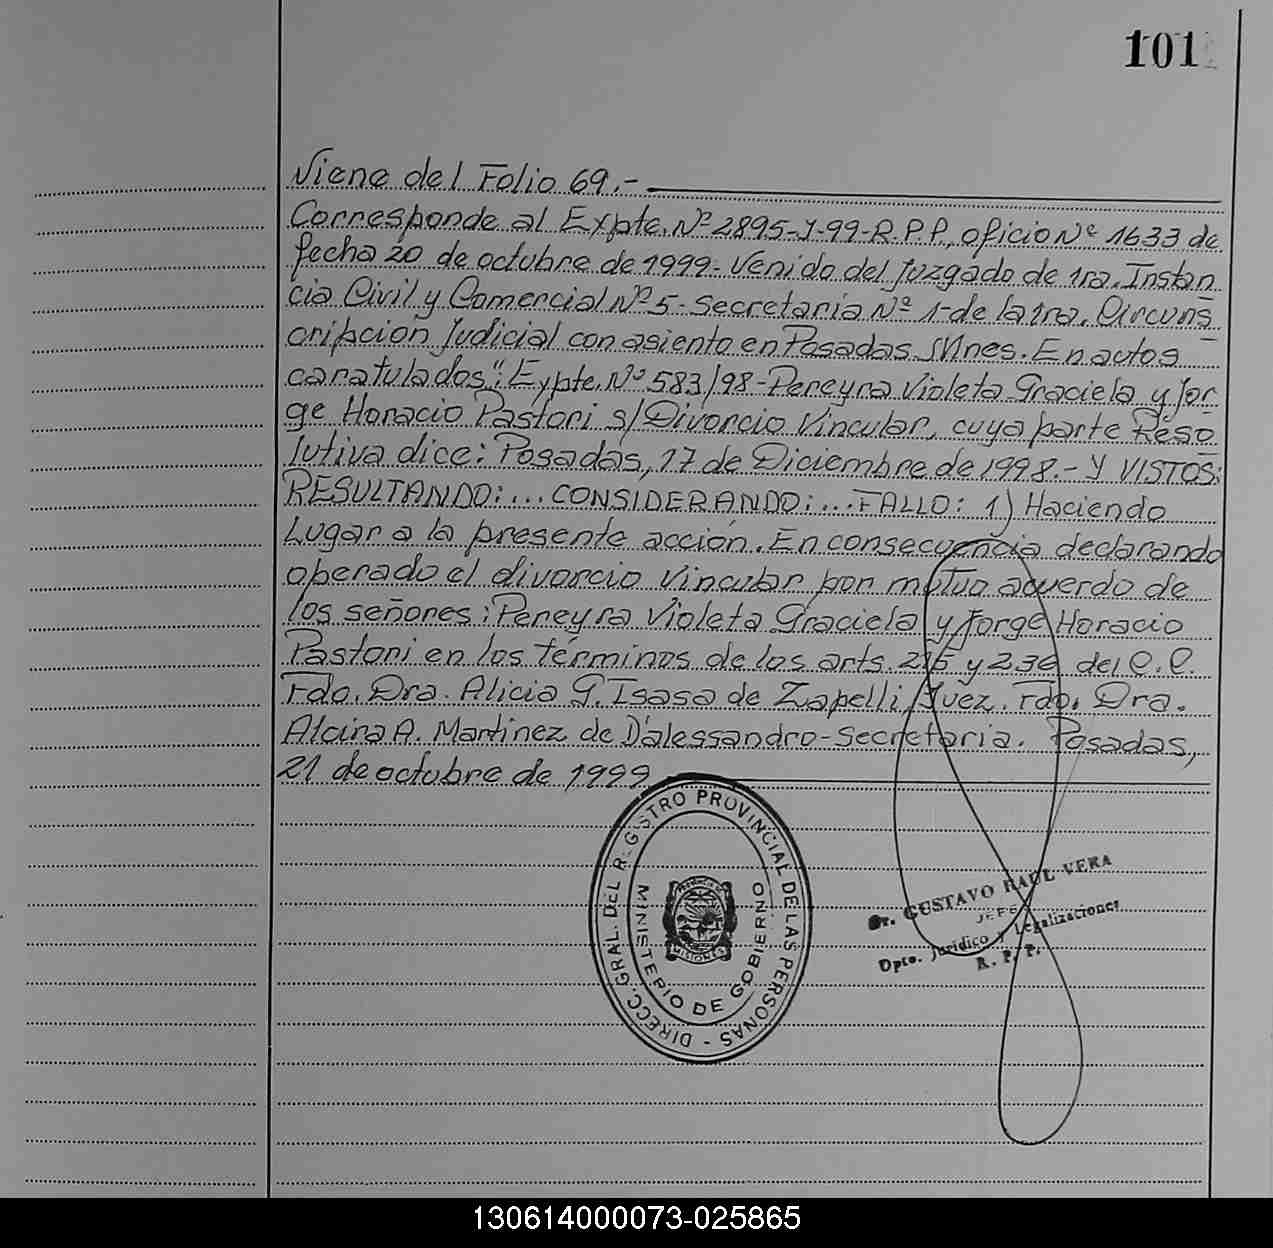 101
Viene del Folio 69.-
Corresponde al Expte. Nº 2895-J-99-R.P.P., oficio Nº 1633 de
fecha 20 de octubre de 1999- Venido del Juzgado de 1ra. Instan
cia Civil y Comercial Nº 5- Secretaria Nº 1- de la 1ra. Circuns
cripcion Judicial con asiento en Posadas Mnes. En autos
caratulados: "Expte. Nº 583/98- Pereyra Violeta Graciela y Jor
ge Horacio Pastori s/ Divorcio Vincular, cuya parte Reso
lutiva dice: Posadas, 17 de Diciembre de 1998.- Y VISTOS:
RESULTANDO:... CONSIDERANDO:... FALLO: 1) Haciendo
Lugar a la presente acción. En consecuencia declarando
operado el divorcio vincular por mutuo acuerdo de
los señores: Pereyra Violeta Graciela y Jorge Horacio
Pastori en los términos de los arts. 215 y 236 del C.C.
Fdo. Dra. Alicia G. Isasa de Zapelli, Juez. Fdo. Dra.
Alcira A. Martinez de D'alessandro- Secretaria. Posadas,
21 de octubre de 1999
DIRECC. GRAL. DEL REGISTRO PROVINCIAL DE LAS PERSONAS -
MINISTERIO DE GOBIERNO
MISIONES
Dr. GUSTAVO RAUL VERA
JEFE
Dpto. Jurídico y Legalizaciones
R. P. P.
130614000073-025865